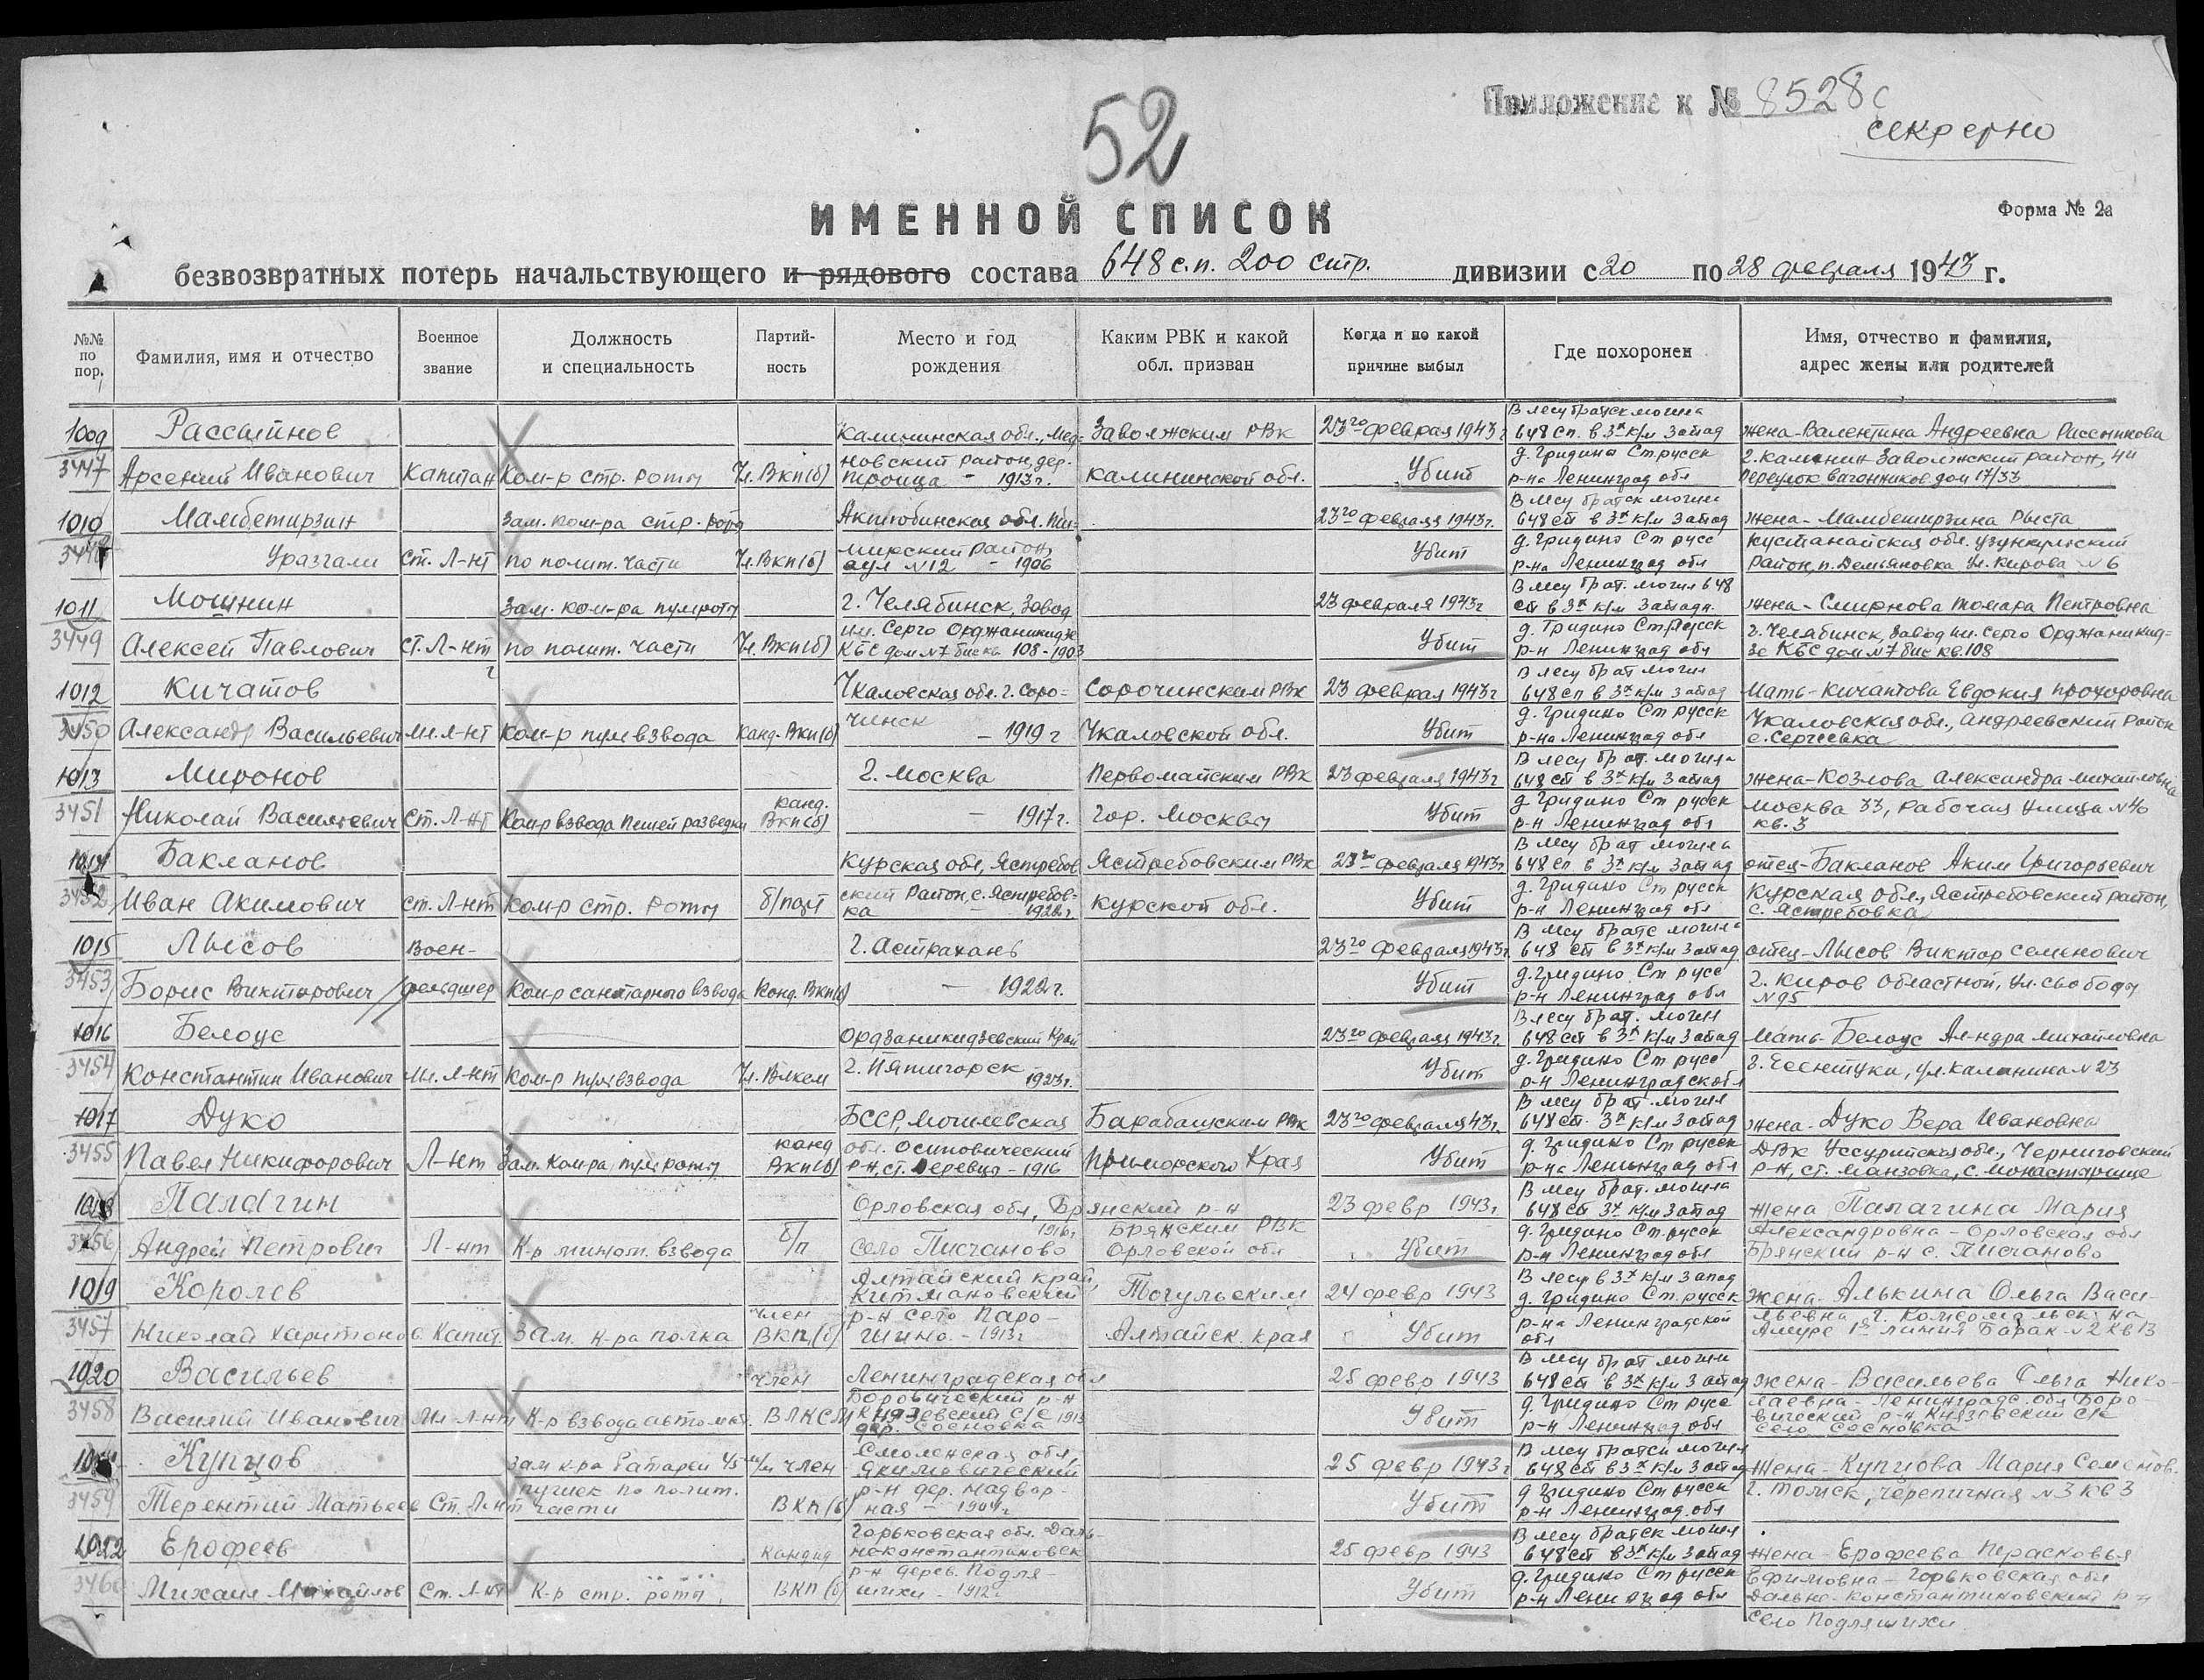 Приложение к № 8528с
секретно
52
ИМЕННОЙ СПИСОК
Форма № 2а
безвозвратных потерь начальствующего и рядового состава 648 с.п. 200 стр. дивизии с 20 по 28 февраля 1943 г.
№№ по пор.
Фамилия, имя и отчество
Военное звание
Должность и специальность
Партийность
Место и год рождения
Каким РВК и какой обл. призван
Когда и по какой причине выбыл
Где похоронен
Имя, отчество и фамилия, адрес жены или родителей
1009
3447
Арсений Иванович
Капитан
Ком-р стр. роты
Чл. Вкп(б)
Калининская обл.,
новский район, дер.
Троица - 1913 г.
Заволжским РВк
калининской обл.
23го февраля 1943 г
Убит
В лесу братск могила
648 сп. в 3х к/м запад
д. Гридино Ст русск
р-на Ленинград обл
жена-Валентина Андреевна
г. Калинин Заволжский район, 4й
переулок вагонников дом 17/33
1010
Мамбетирзин
Уразгали
Ст. Л-нт
Зам. ком-ра стр. роты
по полит. части
Чл. Вкп(б)
Актюбинская обл.
район,
аул №12 - 1906
23го февраля 1943 г.
Убит
В лесу братск могила
648 сп в 3х к/м запад
д. Гридино Ст русс
р-на Ленинград обл
жена-Мамбетирзина Рыста
Кустанайская обл. Узункульский
район, п. Демьяновка ул. Кирова №6
1011
3449
Мошнин
Алексей Павлович
Ст. Л-нт
Зам. ком-ра пульроты
по полит. части
Чл. Вкп(б)
г. Челябинск, завод
им. Серго Орджаникидзе
КБС дом №7 бис кв 108-1903
23 февраля 1943 г
Убит
В лесу брат. могил 648
сп в 3х к/м западн.
д. Гридино Ст. Русск
р-н Ленинград обл
жена-Смирнова Томара Пентровна
г. Челябинск, завод им. Серго Орджаникид-
зе КБС дом №7 бис кв. 108
1012
3450
Кичатов
Александр Васильевич
Мл. л-нт
Ком-р пульвзвода
Канд. Вкп(б)
Чкаловская обл. г. Соро-
чинск - 1919 г
Сорочинским РВк
Чкаловской обл.
23 февраля 1943 г
Убит
В лесу брат могил
648 сп в 3х к/м запад
д. Гридино Ст русск
р-на Ленинград обл
Мать-Кичатова Евдокия Прохоровна
Чкаловская обл., Андреевский район
с. Сергеевка
1013
3451
Миронов
Николай Васильевич
Ст. Л-нт
Ком-р взвода пешей разведки
канд. Вкп(б)
г. Москва
- 1917 г.
Первомайским РВк
гор. Москвы
23 февраля 1943 г
Убит
В лесу брат. могила
648 сп в 3х к/м запад
д. Гридино Ст русск
р-н Ленинград обл
жена-Козлова Александра Михайловна
Москва 33, Рабочая улица №46
кв. 3
1014
3452
Бакланов
Иван Акимович
Ст. Л-нт
Ком-р стр. роты
б/парт
Курская обл, Ястребов
ский район, с. Ястребов-
ка - 1922 г.
Ястребовским РВк
Курской обл.
23го февраля 1943 г
Убит
В лесу брат могила
648 сп в 3х к/м запад
д. Гридино Ст русск
р-н Ленинград обл
отец-Бакланов Аким Григорьевич
Курская обл., Ястребовский район,
с. Ястребовка
1015
3453
Лысов
Борис Викторович
Воен-
фельдшер
Ком-р санитарного взвода
Канд. Вкп(б)
г. Астрахань
- 1922 г.
23го февраля 1943 г.
Убит
В лесу братс могила
648 сп в 3х к/м запад
д. Гридино Ст русс
р-н Ленинград обл
отец-Лысов Виктор Семенович
г. Киров Областной, ул. Свободы
№95
1016
3454
Белоус
Константин Иванович
Мл. л-нт
Ком-р пульвзвода
Чл. Влксм
Ордзаникидзевский Край
г. Пятигорск
1923 г.
23го февраля 1943 г
Убит
В лесу брат. могил
648 сп в 3х к/м запад
д. Гридино Ст русс
р-н Ленинградск обл
Мать-Белоус Ал-ндра Михайловна
г. Есентуки, ул. Калинина №23
1017
3455
Дуко
Павел Никифорович
Л-нт
Зам. ком-ра пульроты
канд Вкп(б)
БССР, Могилевская
обл. Осиповический
р-н, ст. Деревцо - 1916
Барабашским РВк
Приморского Края
23го февраля 43 г.
Убит
В лесу брат. могил
648 сп. 3х к/м запад
д. Гридино Ст русск
р-на Ленинград обл
жена-Дуко Вера Ивановна
ДВК Уссурийская обл., Черниговский
р-н, ст. Манзовка, с. Монастырище
1018
3456
Палагин
Андрей Петрович
Л-нт
К-р мином. взвода
б/п
Орловская обл, Брянский р-н
1916 г.
село Писчаново
Брянским РВК
Орловской обл
23 февр 1943 г
Убит
В лесу брат. могила
648 сп 3х к/м запад
д. Гридино Ст. русск
р-н Ленинград обл
жена Палагина Мария
Александровна-Орловская обл
Брянский р-н с. Писчаново
1019
3457
Королев
Николай Харитонов.
Капит.
Зам. к-ра полка
член ВКП(б)
Алтайский край,
Китмановский
р-н село Паро-
- 1913 г
Тогульским
Алтайск. края
24 февр 1943
Убит
В лесу в 3х к/м запад
д. Гридино Ст. русск
р-на Ленинградской
обл
жена. Алькина Ольга Васи-
льевна г. Комсомольск на
Амуре 1я линия Барак №2 кв 13
1020
3458
Васильев
Василий Иванович
Мл л-нт
К-р взвода автомат.
член ВЛКСМ
Ленинградская обл
Боровический р-н
Князевский с/с 1913
дер. Сосновка
25 февр 1943
Убит
В лесу брат могила
648 сп в 3х к/м запад
д. Гридино Ст русс
р-н Ленинград обл
жена-Васильева Ольга Нико-
лаевна-Ленинградс. обл Боро-
вический р-н Князовский с/с
село Сосновка
3459
Купцов
Терентий Матвеев
Ст. Л-нт
Зам к-ра батареи 45 м/м
пушек по полит.
части
член ВКП(б)
Смоленская обл,
Якимовический
р-н дер. Надвор-
ная - 1904 г
25 февр 1943 г
Убит
В лесу братск могил
648 сп в 3х к/м запад
д Гридино Ст русск
р-н Ленинград. обл
жена-Купцова Мария Семенов.
г. Томск, Черепичная №3 кв 3
1022
3460
Ерофеев
Михаил Михайлов
Ст. Л-нт
К-р стр. роты
кандид ВКП(б)
Горьковская обл. Даль-
неконстантиновск
р-н дерев. Подля-
шихи - 1912 г
25 февр 1943
Убит
В лесу братск могил
648 сп в 3х к/м запад
д. Гридино Ст русск
р-н Ленинград обл
жена-Ерофеева Прасковья
Ефимовна-Горьковская обл
Дальне-Константиновский р-н
село Подляшихи